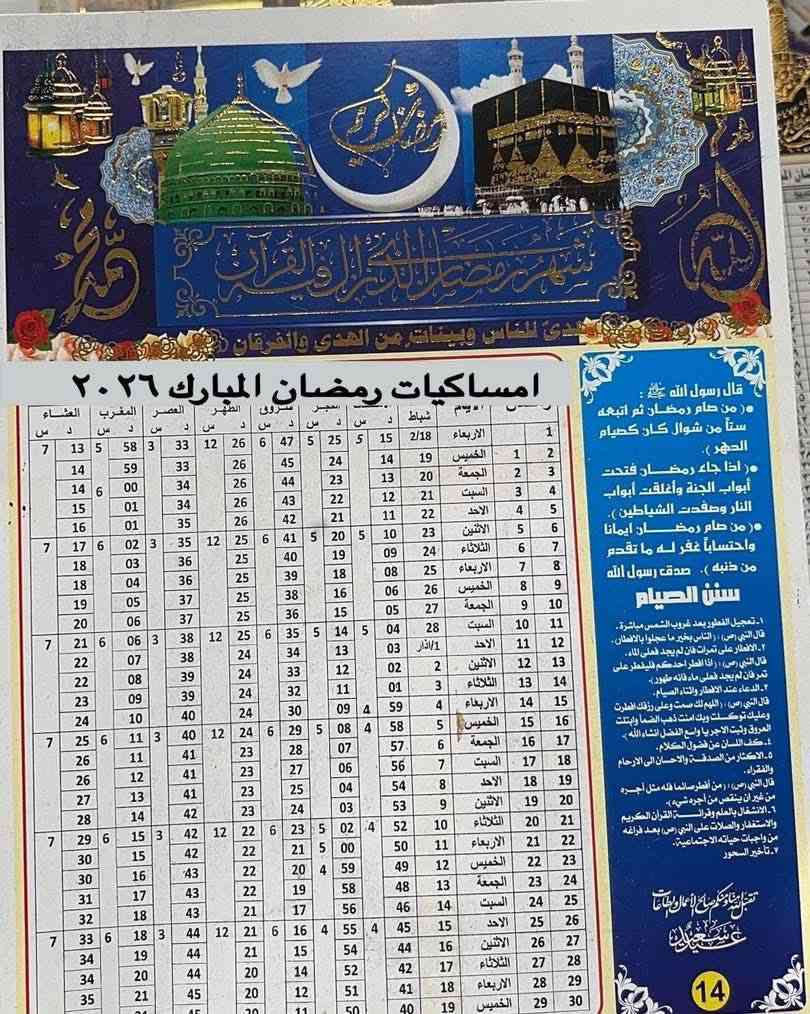 رمضان كريم
الله
محمد
شهر رمضان الذي انزل فيه القرآن
هدىً للناس وبينات من الهدى والفرقان
امساكيات رمضان المبارك ٢٠٢٦
رمضان الايام شباط الفجر شروق الظهر العصر المغرب العشاء
د س د س د س د س د س د س د س
1 الاربعاء 2/18 15 5 25 5 47 6 26 12 33 3 58 5 13 7
2 1 الخميس 19 14 24 45 26 33 59 14
3 2 الجمعة 20 13 23 44 26 34 00 6 14
4 3 السبت 21 12 22 43 26 34 01 15
5 4 الاحد 22 11 21 42 26 35 01 16
6 5 الاثنين 23 10 5 20 5 41 6 25 12 35 3 02 6 17 7
7 6 الثلاثاء 24 09 19 40 25 36 03 18
8 7 الاربعاء 25 08 18 39 25 36 04 18
9 8 الخميس 26 06 16 38 25 37 05 19
10 9 الجمعة 27 05 15 36 25 37 06 20
11 10 السبت 28 04 5 14 5 35 6 25 12 38 3 06 6 21 7
12 11 الاحد 1/اذار 03 13 34 24 38 07 22
13 12 الاثنين 2 02 12 33 24 39 08 22
14 13 الثلاثاء 3 01 11 32 24 39 09 23
15 14 الاربعاء 4 59 4 09 30 24 40 10 24
16 15 الخميس 5 58 4 08 5 29 6 24 12 40 3 11 6 25 7
17 16 الجمعة 6 57 07 28 23 41 11 26
18 17 السبت 7 56 06 27 23 41 12 26
19 18 الاحد 8 54 04 25 23 41 13 27
20 19 الاثنين 9 53 03 24 23 42 14 28
21 20 الثلاثاء 10 52 4 02 5 23 6 22 12 42 3 15 6 29 7
22 21 الاربعاء 11 50 00 5 21 22 42 15 30
23 22 الخميس 12 49 59 4 20 22 43 16 30
24 23 الجمعة 13 48 58 19 22 43 17 31
25 24 السبت 14 46 56 17 21 43 18 32
26 25 الاحد 15 45 4 55 4 16 6 21 12 44 3 18 6 33 7
27 26 الاثنين 16 44 54 15 21 44 19 34
28 27 الثلاثاء 17 42 52 14 20 44 20 34
29 28 الاربعاء 18 41 51 12 20 45 21 35
30 29 الخميس 19 40 50 11 20
قال رسول الله ﷺ :
●( من صام رمضان ثم اتبعه
ستاً من شوال كان كصيام
الدهر ).
●( اذا جاء رمضان فتحت
أبواب الجنة وأغلقت أبواب
النار وصفدت الشياطين ).
●( من صام رمضان ايمانا
واحتساباً غفر له ما تقدم
من ذنبه ). صدق رسول الله
سنن الصيام
١- تعجيل الفطور بعد غروب الشمس مباشرة .
قال النبي (ص) : (الناس بخير ما عجلوا بالافطار).
٢- الافطار على تمرات فان لم يجد فعلى الماء.
قال النبي (ص) : (اذا افطر احدكم فليفطر على
تمر فان لم يجد فعلى ماء فانه طهور).
٣- الدعاء عند الافطار واثناء الصيام.
قال النبي (ص) : (اللهم لك صمت وعلى رزقك افطرت
وعليك توكلت وبك امنت ذهب الضمأ وابتلت
العروق وثبت الاجر يا واسع الفضل انشاء الله ).
٤- كف اللسان عن فضول الكلام.
٥- الاكثار من الصدقة والاحسان الى الارحام
والفقراء.
قال النبي (ص) : ( من أفطر صائما فله مثل أجره
من غير ان ينقص من أجره شيء ).
٦- الانشغال بالعلم وقرائة القرآن الكريم
والاستغفار والصلات على النبي (ص) بعد فراغه
من واجبات حياته الاجتماعية.
٧- تأخير السحور
تقبل الله منا ومنكم صالح الاعمال والطاعات
عيد سعيد
14